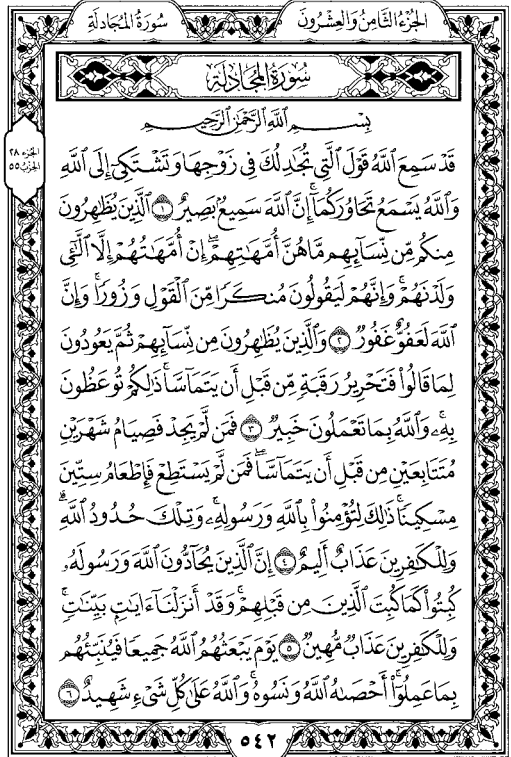 الجُزْءُ الثَّامِنُ وَالعِشْرُونَ
سُورَةُ المُجَادلَةِ
سُورَةُ المُجَادلَةِ
بِسْمِ ٱللَّهِ ٱلرَّحْمَٰنِ ٱلرَّحِيمِ
الجزء ٢٨
الحزب ٥٥
قَدْ سَمِعَ ٱللَّهُ قَوْلَ ٱلَّتِى تُجَٰدِلُكَ فِى زَوْجِهَا وَتَشْتَكِىٓ إِلَى ٱللَّهِ
وَٱللَّهُ يَسْمَعُ تَحَاوُرَكُمَآ ۚ إِنَّ ٱللَّهَ سَمِيعٌۢ بَصِيرٌ ١ ٱلَّذِينَ يُظَٰهِرُونَ
مِنكُم مِّن نِّسَآئِهِم مَّا هُنَّ أُمَّهَٰتِهِمْ ۖ إِنْ أُمَّهَٰتُهُمْ إِلَّا ٱلَّٰٓـِٔى
وَلَدْنَهُمْ ۚ وَإِنَّهُمْ لَيَقُولُونَ مُنكَرًا مِّنَ ٱلْقَوْلِ وَزُورًا ۚ وَإِنَّ
ٱللَّهَ لَعَفُوٌّ غَفُورٌ ٢ وَٱلَّذِينَ يُظَٰهِرُونَ مِن نِّسَآئِهِمْ ثُمَّ يَعُودُونَ
لِمَا قَالُوا۟ فَتَحْرِيرُ رَقَبَةٍ مِّن قَبْلِ أَن يَتَمَآسَّا ۚ ذَٰلِكُمْ تُوعَظُونَ
بِهِۦ ۚ وَٱللَّهُ بِمَا تَعْمَلُونَ خَبِيرٌ ٣ فَمَن لَّمْ يَجِدْ فَصِيَامُ شَهْرَيْنِ
مُتَتَابِعَيْنِ مِن قَبْلِ أَن يَتَمَآسَّا ۖ فَمَن لَّمْ يَسْتَطِعْ فَإِطْعَامُ سِتِّينَ
مِسْكِينًا ۚ ذَٰلِكَ لِتُؤْمِنُوا۟ بِٱللَّهِ وَرَسُولِهِۦ ۚ وَتِلْكَ حُدُودُ ٱللَّهِ ۗ
وَلِلْكَٰفِرِينَ عَذَابٌ أَلِيمٌ ٤ إِنَّ ٱلَّذِينَ يُحَآدُّونَ ٱللَّهَ وَرَسُولَهُۥ
كُبِتُوا۟ كَمَا كُبِتَ ٱلَّذِينَ مِن قَبْلِهِمْ ۚ وَقَدْ أَنزَلْنَآ ءَايَٰتٍۭ بَيِّنَٰتٍ ۚ
وَلِلْكَٰفِرِينَ عَذَابٌ مُّهِينٌ ٥ يَوْمَ يَبْعَثُهُمُ ٱللَّهُ جَمِيعًا فَيُنَبِّئُهُم
بِمَا عَمِلُوٓا۟ ۚ أَحْصَىٰهُ ٱللَّهُ وَنَسُوهُ ۚ وَٱللَّهُ عَلَىٰ كُلِّ شَىْءٍ شَهِيدٌ ٦
٥٤٢